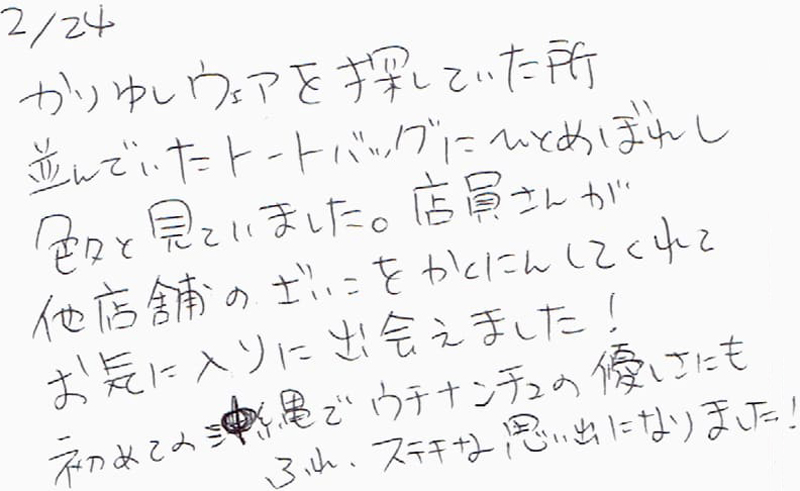 2/24
かりゆしウェアを探していた所
並んでいたトートバッグにひとめぼれし
色々と見ていました。店員さんが
他店舗のざいこをかくにんしてくれて
お気に入りに出会えました！
初めての沖縄でウチナンチュの優しさにも
ふれ、ステキな思い出になりました！